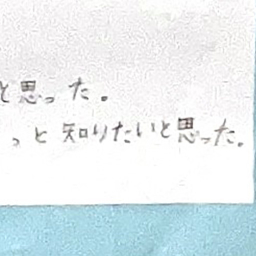 と思った。
っと知りたいと思った。